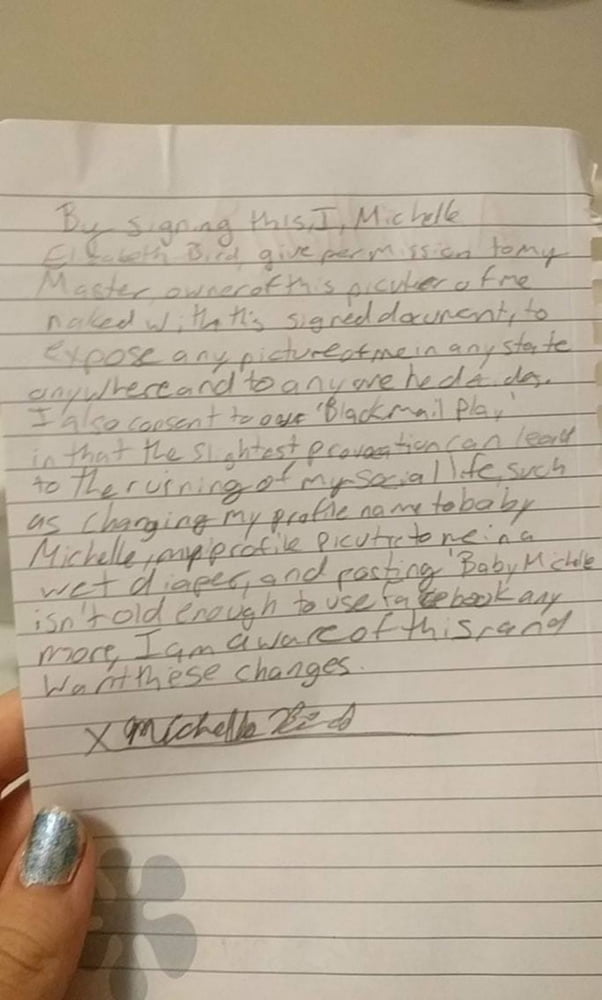 By signing this, I, Michelle
Elizabeth Bird, give permission to my
Master, owner of this picutuer of me
naked with this signed document, to
expose any picture of me in any state
anywhere and to anyone he decides.
I also consent to our 'Blackmail Play'
in that the slightest provocation can lead
to the ruining of my social life, such
as changing my profile name to baby
Michelle, my profile picutre to me in a
wet diaper, and posting 'Baby Michelle
isn't old enough to use facebook any
more, I am aware of this, and
Want these changes.
X Michelle Bird